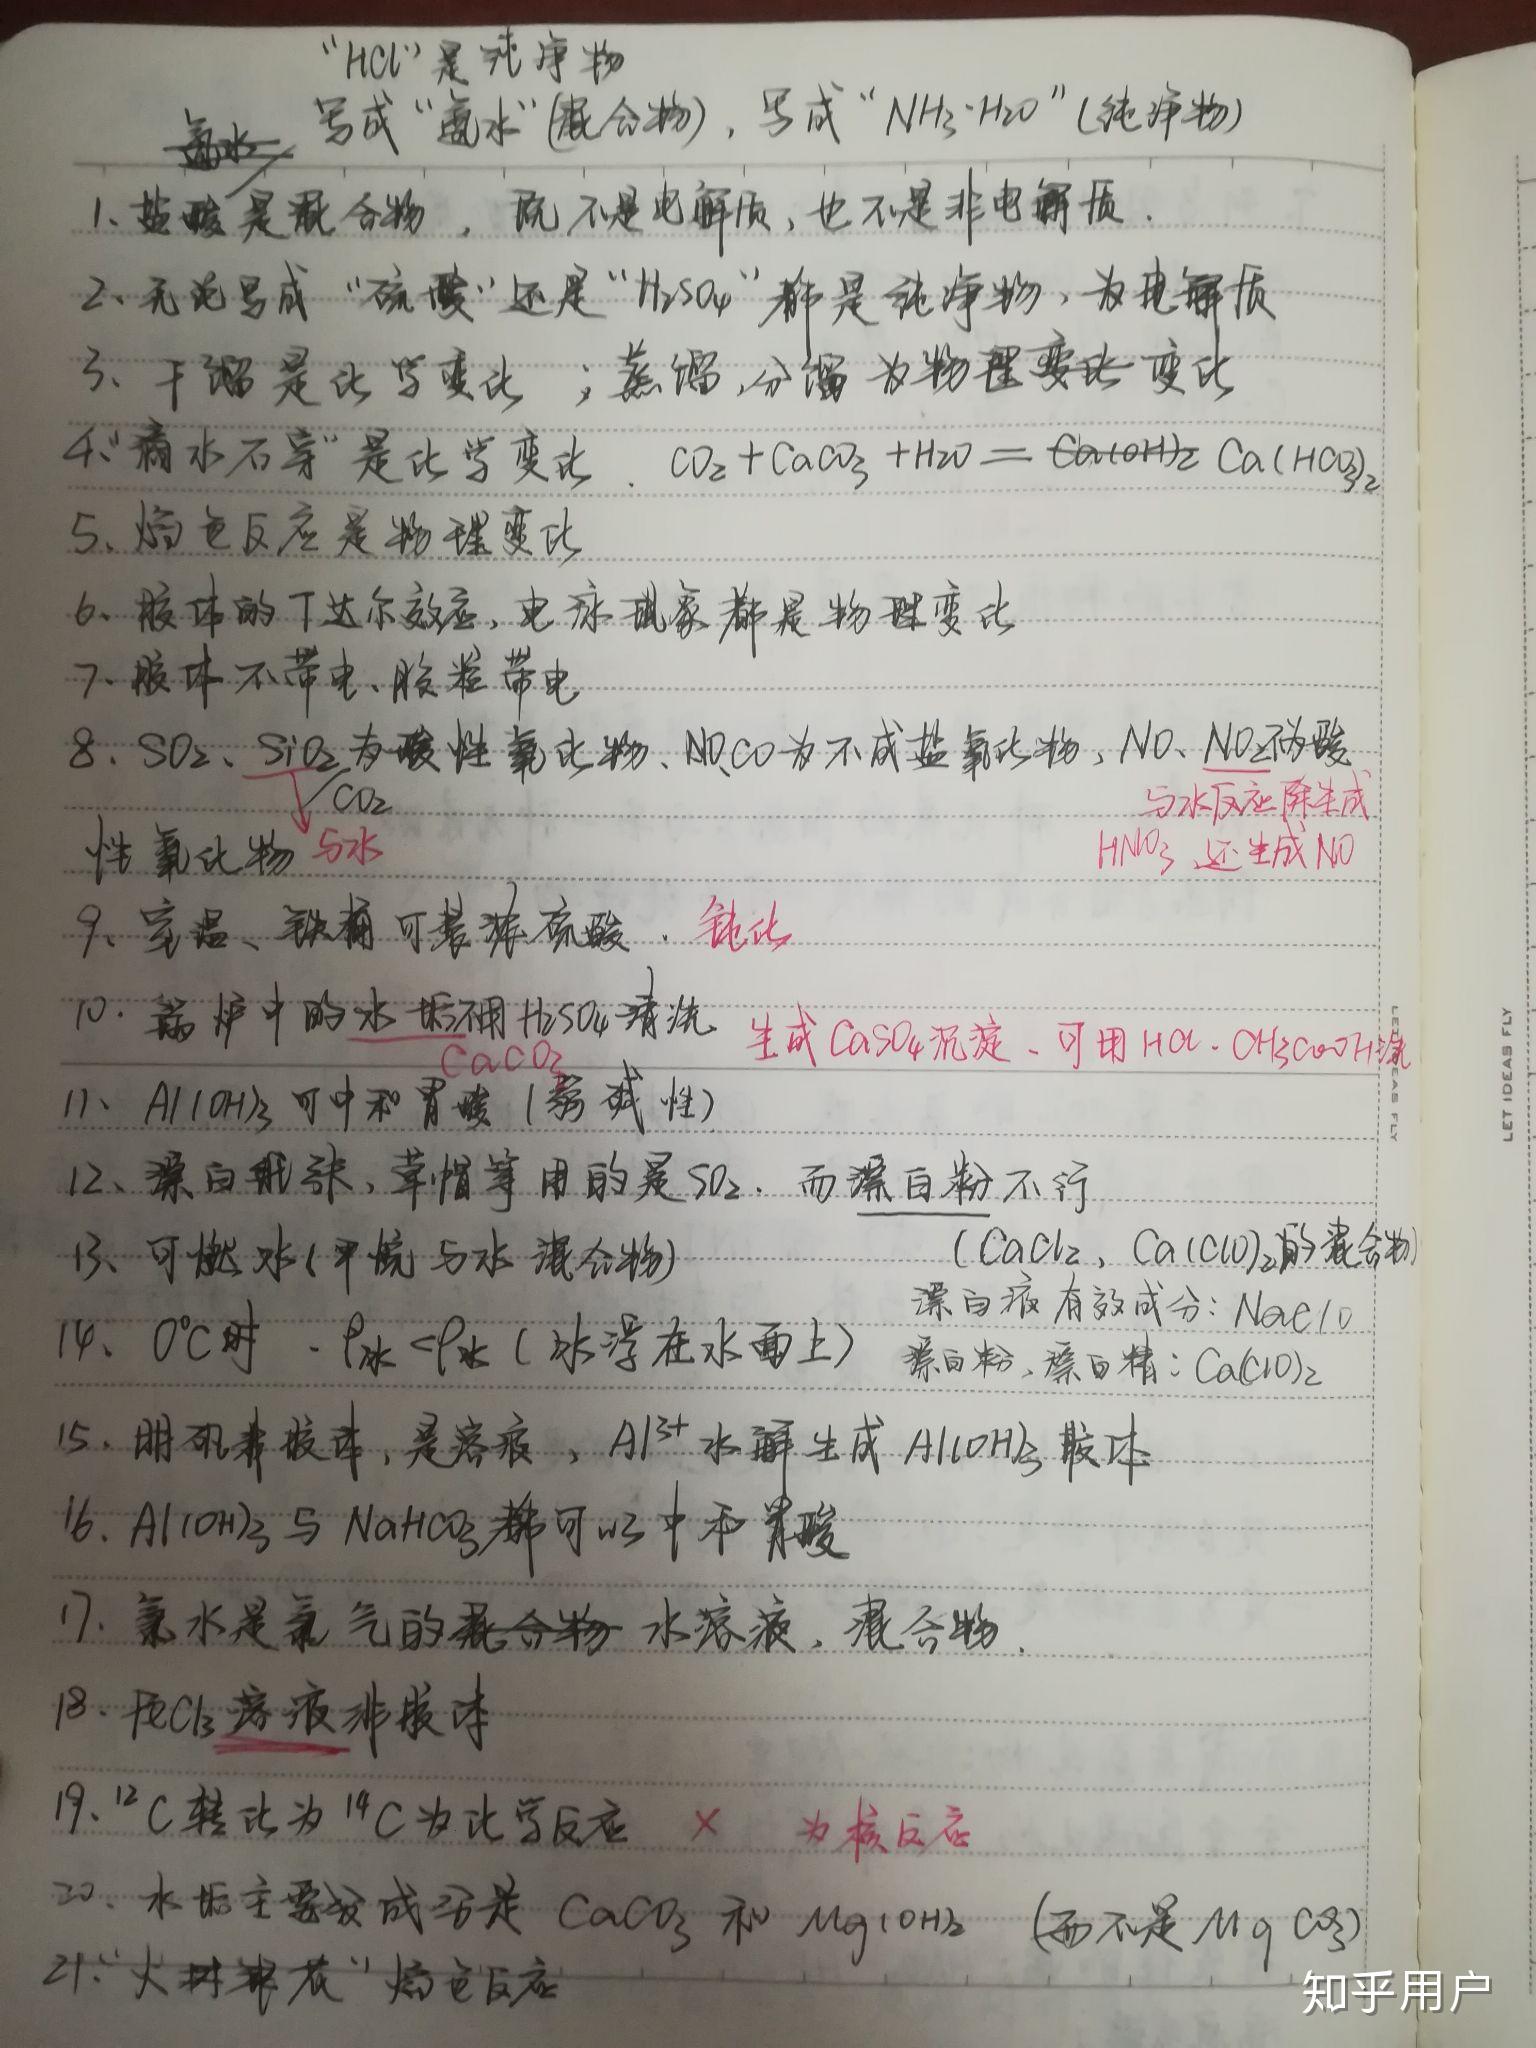 "HCl"是纯净物
氨水 写成"氨水"(混合物)，写成"NH3·H2O"(纯净物)
1、盐酸是混合物，既不是电解质，也不是非电解质．
2、无论写成"硫酸"还是"H2SO4"都是纯净物，为电解质
3、干馏是化学变化；蒸馏、分馏为物理变化 变化
4、"滴水石穿"是化学变化．CO2+CaCO3+H2O=Ca(OH)2 Ca(HCO3)2
5、焰色反应是物理变化
6、胶体的丁达尔效应，电泳现象都是物理变化
7、胶体不带电、胶粒带电
8、SO2、SiO2为酸性氧化物、NO、CO为不成盐氧化物，NO、NO2不为酸
CO2 与水反应除生成
性氧化物 与水 HNO3 还生成NO
9、室温、铁桶可装浓硫酸．钝化
10．锅炉中的水垢不用H2SO4清洗 生成CaSO4沉淀、可用HCl、CH3COOH洗
CaCO2
11、Al(OH)3可中和胃酸(弱碱性)
12、漂白纸张，草帽等用的是SO2．而漂白粉不行
13、可燃冰(甲烷与水混合物) (CaCl2，Ca(ClO)2的混合物)
漂白液有效成分：NaClO
14、0°C时．ρ冰<ρ水(冰浮在水面上) 漂白粉、漂白精：Ca(ClO)2
15、明矾非胶体，是溶液，Al3+水解生成Al(OH)3胶体
16、Al(OH)3与NaHCO3都可以中和胃酸
17、氯水是氯气的混合物 水溶液，混合物．
18、FeCl3溶液非胶体
19、12C转化为14C为化学反应 × 为核反应
20、水垢主要成分是CaCO3和Mg(OH)2 (而不是MgCO3)
21、"火树银花"焰色反应
LET IDEAS FLY
LET IDEAS FLY
知乎用户